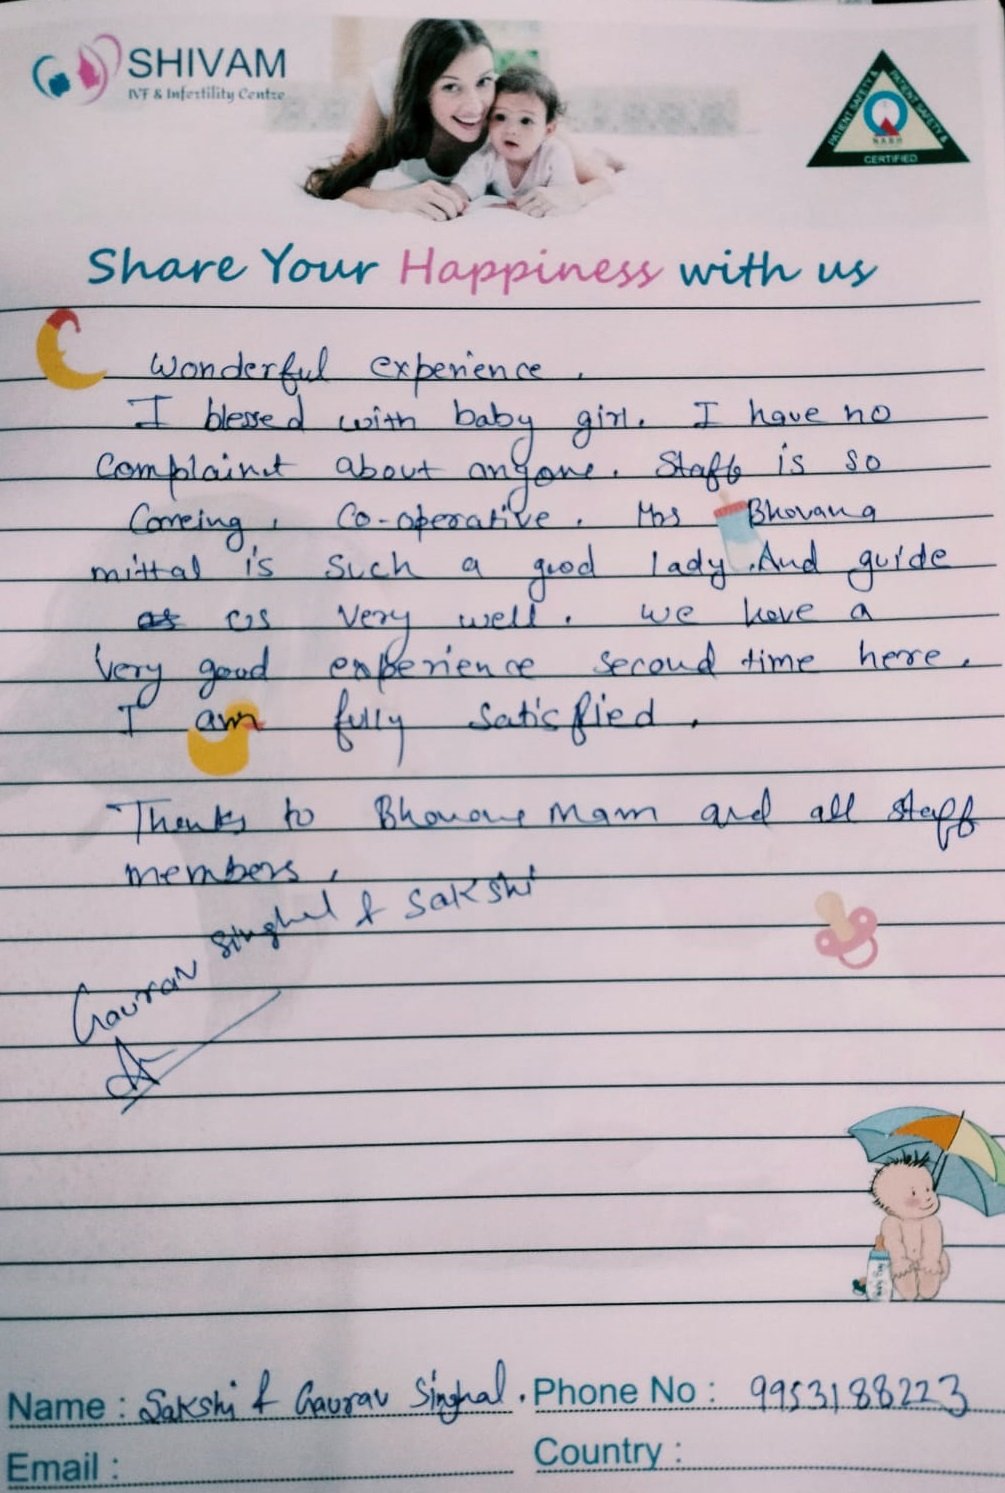 SHIVAM
IVF & Infertility Centre
PATIENT SAFETY &
PATIENT SAFETY &
NABH
CERTIFIED
Share Your Happiness with us
Wonderful experience.
I blessed with baby girl. I have no
Complainet about anyone. Staff is so
Careing, Co-operative. Mrs Bhovana
mittal is such a good lady. And guide
us very well. We have a
very good experience second time here.
I am fully satisfied.
Thanks to Bhovana Mam and all staff
members,
Gaurav Singhal & Sakshi
Name : Sakshi & Gaurav Singhal. Phone No : 9953188223
Email :
Country :